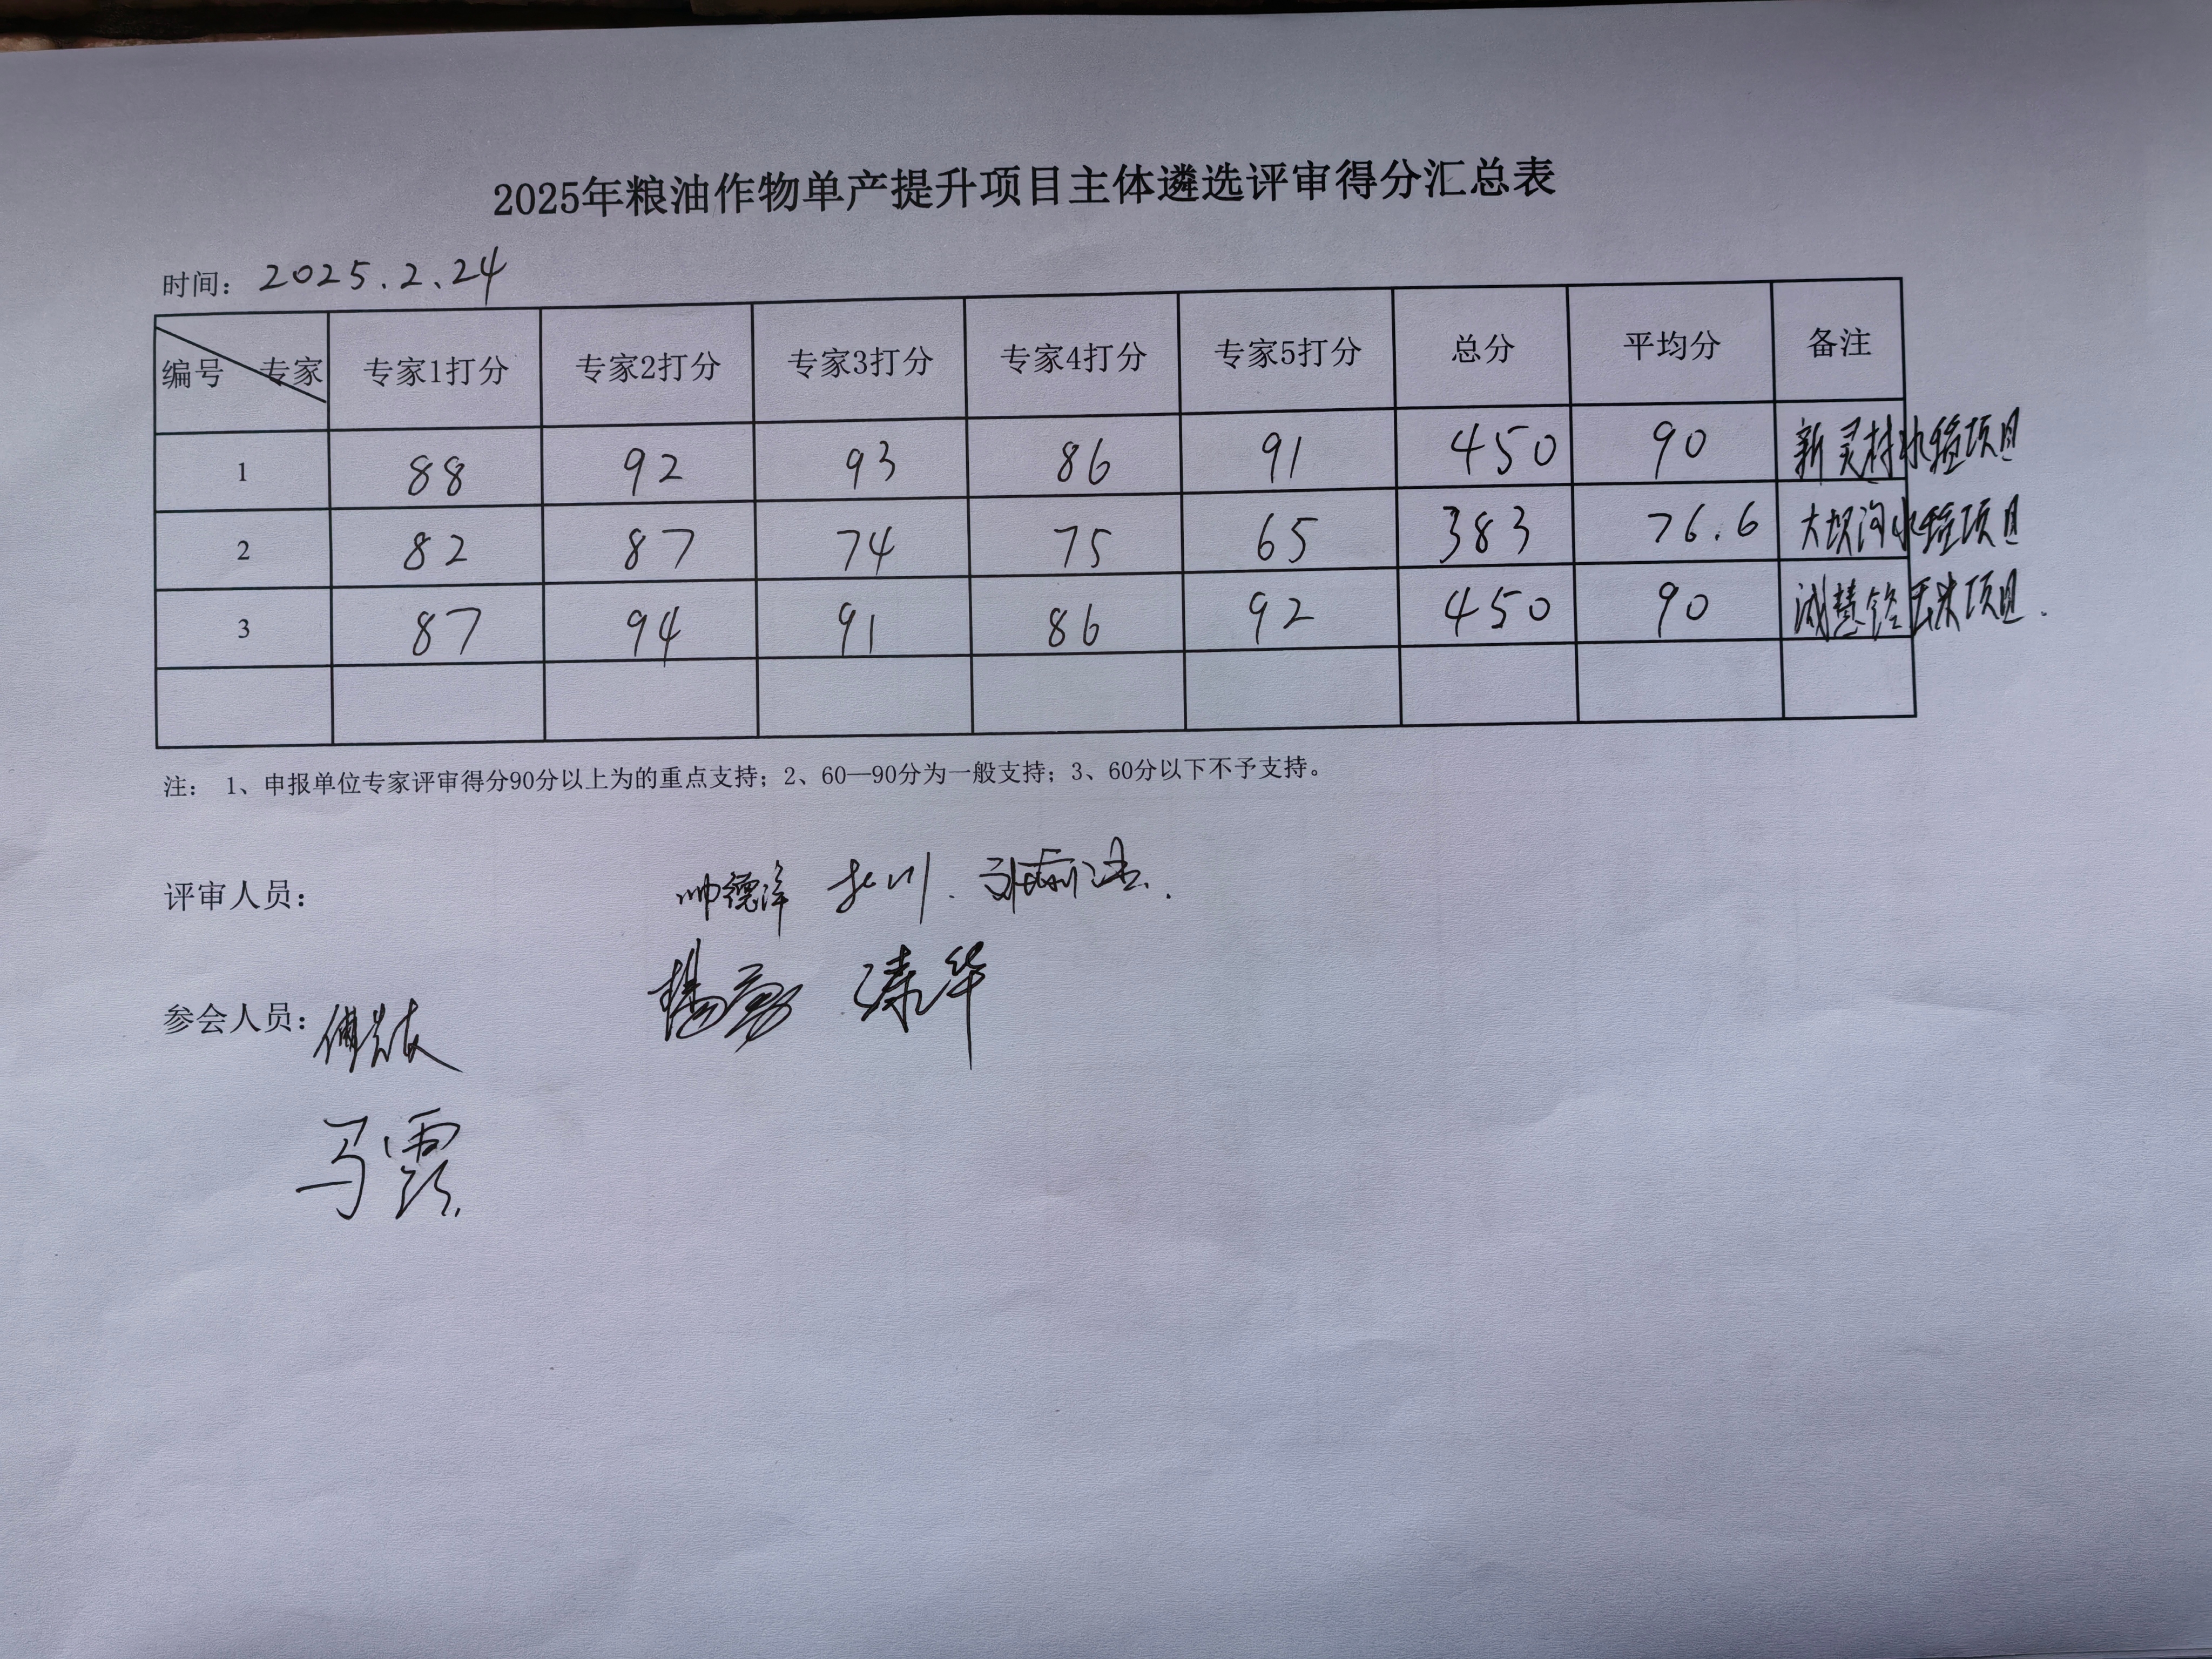 2025年粮油作物单产提升项目主体遴选评审得分汇总表
时间：2025.2.24
编号 专家 专家1打分 专家2打分 专家3打分 专家4打分 专家5打分 总分 平均分 备注
1 88 92 93 86 91 450 90 新灵村水稻项目
2 82 87 74 75 65 383 76.6 大坝沟水稻项目
3 87 94 91 86 92 450 90 诚慧铭玉米项目.
注： 1、申报单位专家评审得分90分以上为的重点支持；2、60—90分为一般支持；3、60分以下不予支持。
评审人员： 帅德洋
秦华
参会人员：
马霞